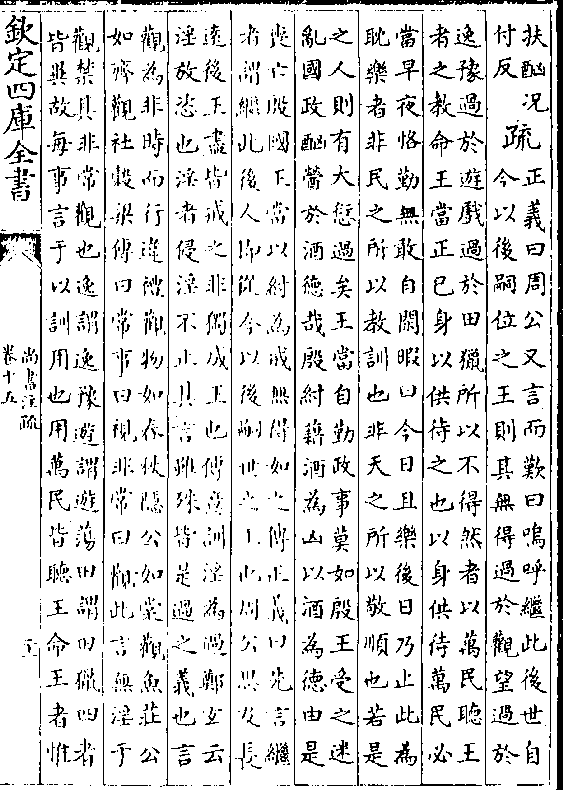 扶酗况
付反 疏
正義曰周公又言而歎曰嗚呼繼此後世自
今以後嗣位之王則其無得過於觀望過於
逸豫過於遊戲過於田獵所以不得然者以萬民聽王
者之教命王當正已身以供待之也以身供待萬民必
當早夜恪勤無敢自閑暇曰今日且樂後日乃止此為
耽樂者非民之所以教訓也非天之所以敬順也若是
之人則有大愆過矣王當自勤政事莫如殷王受之迷
亂國政酗醟於酒德哉殷紂藉酒為凶以酒為德由是
喪亡殷國王當以紂為戒無得如之 傳正義曰先言繼
者謂繼此後人即從今以後嗣世之王也周公思及長
遠後王盡皆戒之非獨成王也 傳意訓淫為過鄭玄云
淫放恣也淫者侵淫不止其言雖殊皆是過之義也言
觀為非時而行違禮觀物如春秋隱公如棠觀魚莊公
如齊觀社穀梁傳曰常事曰視非常曰觀此言無淫于
觀禁其非常觀也逸謂逸豫遊謂遊蕩田謂田獵四者
皆異故每事言于以訓用也用萬民皆聽王命王者惟
欽定四庫全書
尚書注疏
卷十五